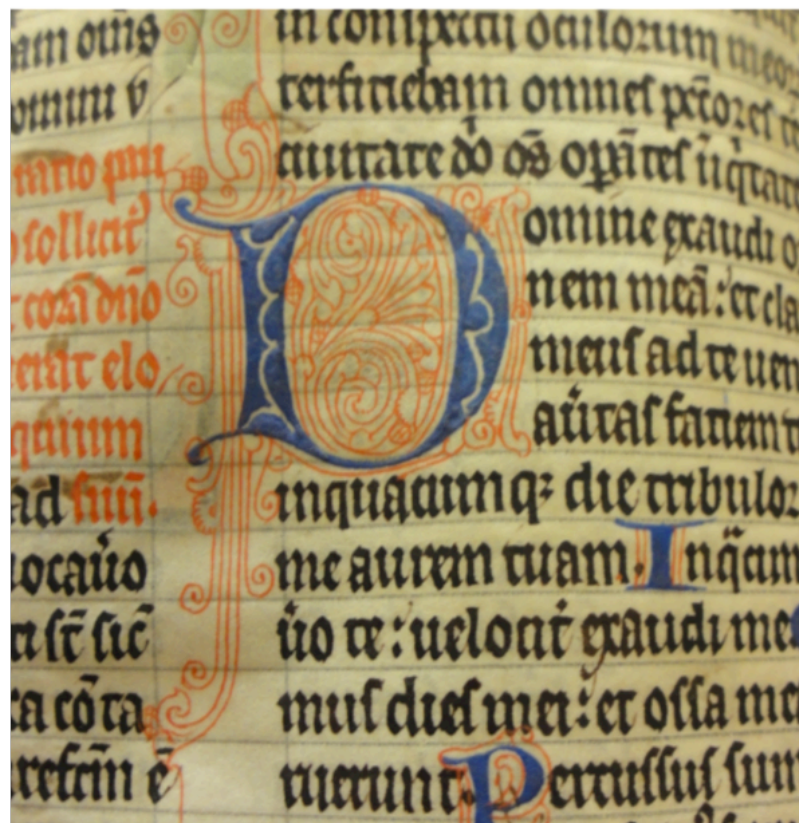 am oms̄
omini v
ratio pau
sollicit᷒
corā dño
erat elo
quium
ad
ocaũo
ti st̄ sic̄
ca cōta
ē
in conspectu oculorum meor
terficiebam omnes pc̄cores
ciuitate dō os̄ opãtes
Domine exaudi o
nem meā: et cla
meus ad te uen
aũtas faciem t
in quacumqꝫ die tribulor
me aurem tuam. In qͣcum
ũo te: uelocit᷒ exaudi me
mus dies mei: et ossa me
ruerunt. Percussus sum